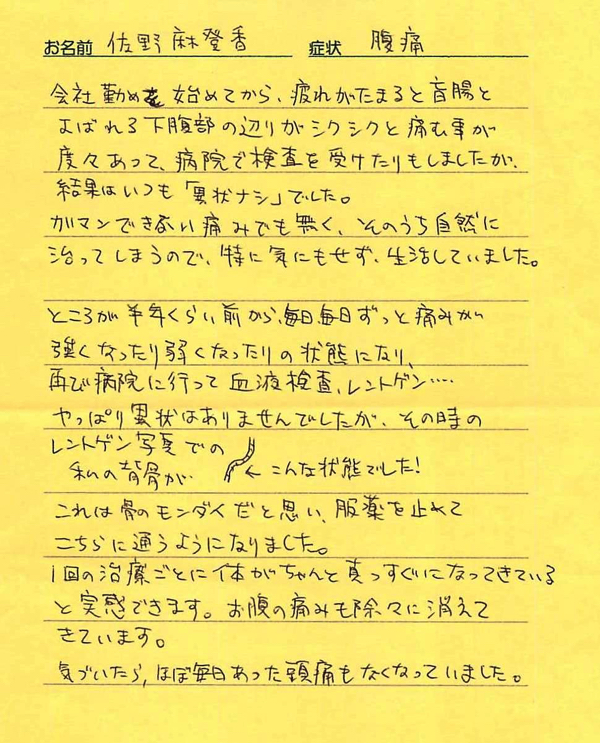 お名前 佐野麻登香 症状 腹痛
会社勤めを始めてから、疲れがたまると盲腸と
よばれる下腹部の辺りがシクシクと痛む事が
度々あって、病院で検査を受けたりもしましたが、
結果はいつも「異状ナシ」でした。
ガマンできない痛みでも無く、そのうち自然に
治ってしまうので、特に気にもせず、生活していました。
ところが半年くらい前から、毎日、毎日ずっと痛みが
強くなったり弱くなったりの状態になり、
再び病院に行って血液検査、レントゲン‥‥
やっぱり異状はありませんでしたが、その時の
レントゲン写真での
私の背骨が ← こんな状態でした!
これは骨のモンダイだと思い、服薬を止めて
こちらに通うようになりました。
1回の治療ごとに体がちゃんと真っすぐになってきている
と実感できます。お腹の痛みも除々に消えて
きています。
気づいたら、ほぼ毎日あった頭痛もなくなっていました。